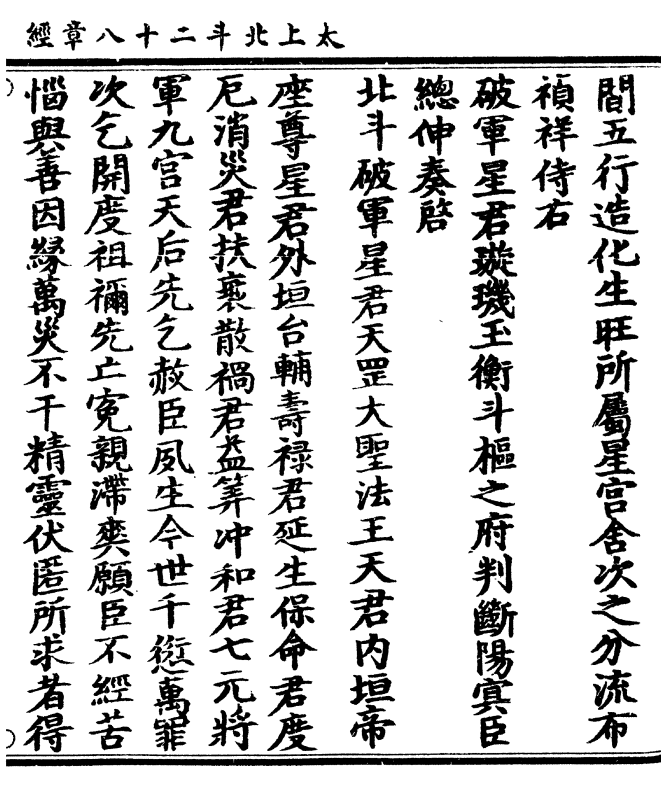 太上北斗二十八章經
間五行造化生旺所屬星宮舍次之分流布
禎祥侍右
破軍星君璇璣玉衡斗樞之府判斷陽冥臣
總伸奏啓
北斗破軍星君天罡大聖法王天君内垣帝
座尊星君外垣台輔壽禄君延生保命君度
厄消災君扶衰散禍君益筭冲和君七元將
軍九宫天后先乞赦臣夙生今世千愆萬罪
次乞開度祖禰先亡寃親滯爽願臣不經苦
惱與善因緣萬災不干精靈伏匿所求者得